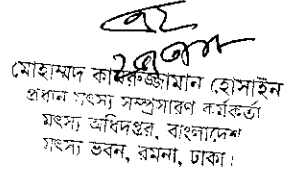 মোহাম্মদ কামরুজ্জামান হোসাইন
প্রধান মৎস্য সম্প্রসারণ কর্মকর্তা
মৎস্য অধিদপ্তর, বাংলাদেশ
মৎস্য ভবন, রমনা, ঢাকা।